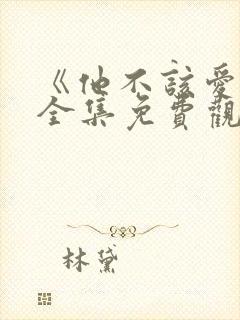 《他不該愛
全集免費觀
林黛